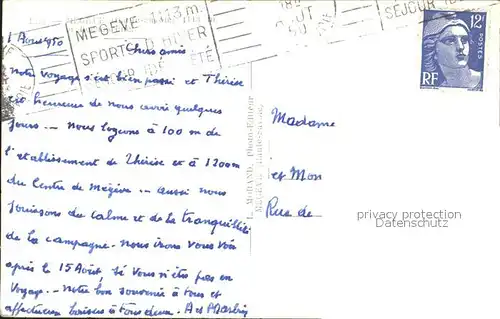 1 Aout 1950
MEGÈVE 1113m.
SPORTS D'HIVER
ÉTÉ
SEJOUR
12F
POSTES
RF
Chers amis
Notre voyage s'est bien passé et Thérèse
est heureuse de nous avoir quelques
jours — nous logeons à 100 m de
l'établissement de Thérèse et à 1200m
du Centre de Megève — aussi nous
jouissons du calme et de la tranquillité
de la campagne. Nous irons vous voir
après le 15 Août, si vous n'êtes pas en
voyage — notre bon souvenir à tous et
affectueux baisers à tous deux.
L. MORAND, Photo-Editeur
MEGÈVE
Madame
et Mon
Rue de
privacy protection
Datenschutz